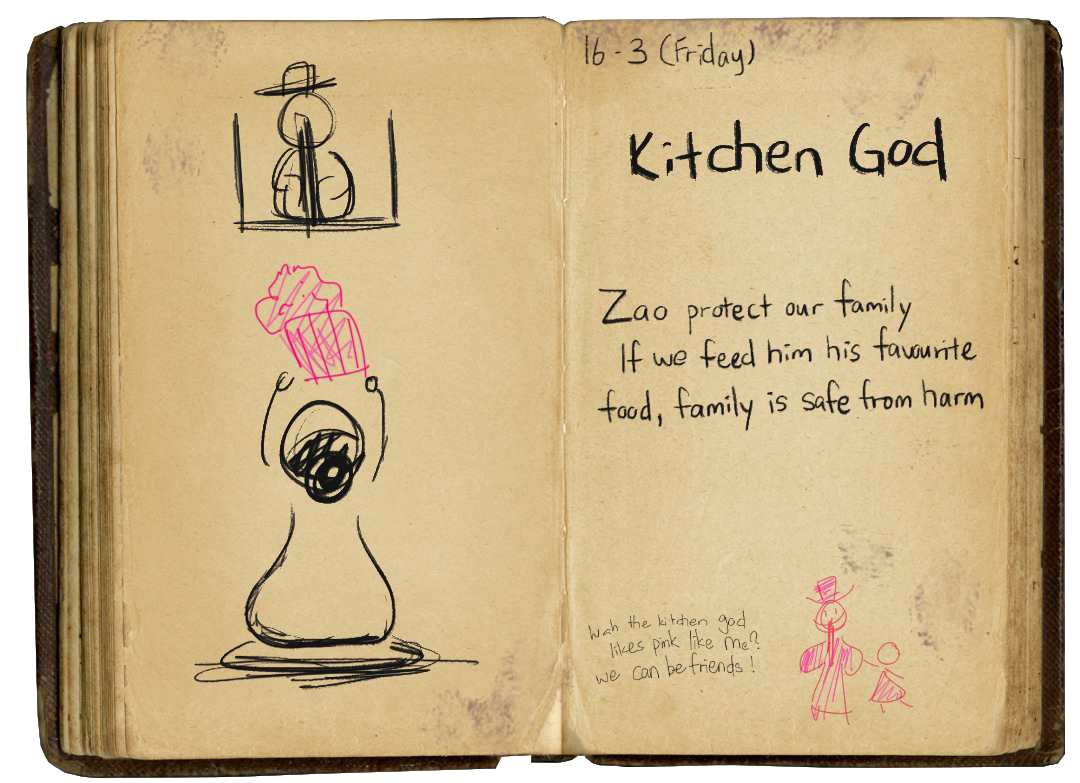 16-3 (Friday)
Kitchen God
Zao protect our family
If we feed him his favourite
food, family is safe from harm
Wah the kitchen god
likes pink like me?
we can be friends!